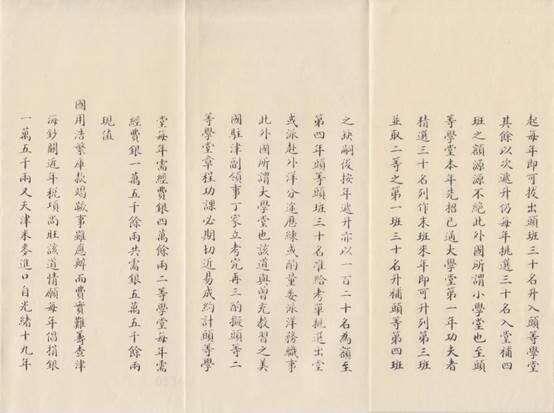 起每年即可拔出頭班三十名升入頭等學堂
其餘以次遞升仍每年挑選三十名入堂補四
班之額源源不絕此外國所謂小學堂也至頭
等學堂本年先招已通大學堂第一年功夫者
精選三十名列作末班來年即可升列第三班
並取二等之第一班三十名升補頭等第四班
之缺嗣後按年遞升亦以一百二十名為額至
第四年頭等頭班三十名准給考單挑選出堂
或派赴外洋分途歷練或酌量委派洋務職事
此外國所謂大學堂也該道與曾充教習之美
國駐津副領事丁家立考究再三酌擬頭等二
等學堂章程功課必期切近易成約計頭等學
堂每年需經費銀四萬餘兩二等學堂每年需
經費銀一萬五千餘兩共需銀五萬五千餘兩
現值
國用浩繁庫款竭蹶事雖應辦而費實難籌查津
海鈔關近年稅項尚旺該道情願每年倡捐銀
一萬五千兩又天津米麥進口自光緒十九年